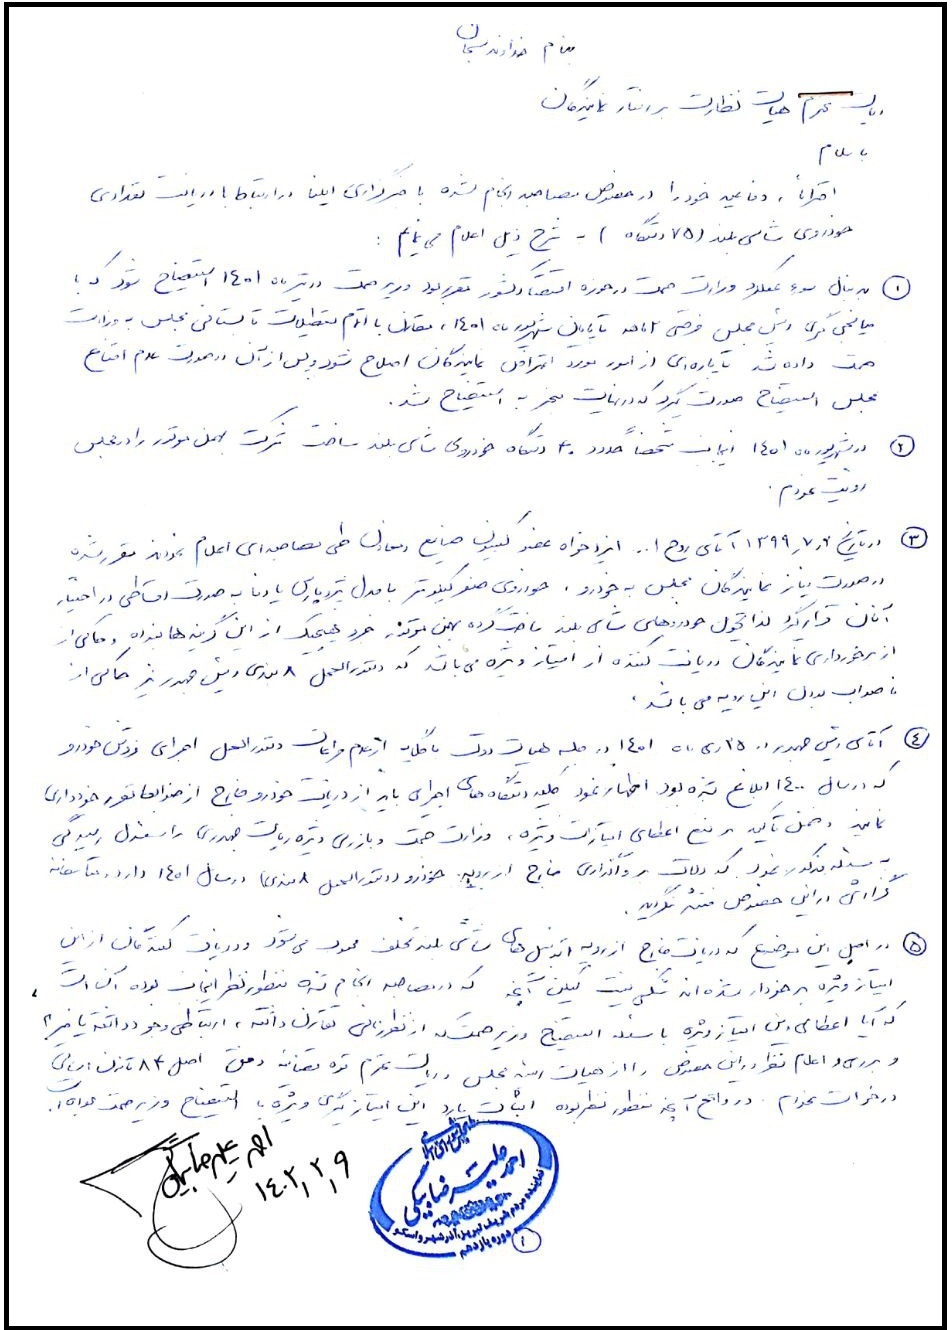 بنام خداوند سبحان
ریاست محترم هیات نظارت بر رفتار نمایندگان
با سلام
احتراماً، دفاعیه خود را در خصوص مصاحبه انجام شده با خبرگزاری ایلنا در ارتباط با دریافت تعدادی
خودروی شاسی بلند (۷۵ دستگاه) به شرح ذیل اعلام می نمایم :
۱ به دنبال سوء عملکرد وزارت صمت در حوزه اقتصاد کشور مقرر بود وزیر صمت در تیر ماه ۱۴۰۱ استیضاح شود که با
میانجی گری رئیس مجلس فرصتی ۲ ماهه تا پایان شهریور ماه ۱۴۰۱، مقارن با اتمام تعطیلات تابستانی مجلس به وزارت
صمت داده شد تا پاره‌ای از امور مورد اعتراض نمایندگان اصلاح شود و پس از آن در صورت عدم اقناع
مجلس استیضاح صورت گیرد که در نهایت منجر به استیضاح شد.
۲ در شهریور ماه ۱۴۰۱ اینجانب شخصاً حدود ۴۰ دستگاه خودروی شاسی بلند ساخت شرکت بهمن موتور را در مجلس
رویت نمودم.
۳ در تاریخ ۱۳۹۹/۷/۲ آقای روح ا... ایزدخواه عضو کمیسیون صنایع و معادن طی مصاحبه ای اعلام نمودند مقرر شده
در صورت نیاز نمایندگان مجلس به خودرو، خودروی صفر کیلومتر با مدل پژو پارس یا دنا به صورت اقساطی در اختیار
آنان قرار گیرد لذا تحویل خودروهای شاسی بلند ساخت گروه بهمن موتور جزء هیچیک از این گزینه ها نبوده و حاکی از
از برخورداری نمایندگان دریافت کننده از امتیاز ویژه می باشد که دستورالعمل ۸ بندی رئیس جمهور نیز حاکی از
ناصواب بودن این رویه می باشد.
۴ آقای رئیس جمهور در ۲۵ دی ماه ۱۴۰۱ در جلسه هیات دولت با گلایه از عدم مراعات دستورالعمل اجرای فروش خودرو
که در سال ۱۴۰۰ ابلاغ شده بود اظهار نمود کلیه دستگاه های اجرای باید از دریافت خودرو خارج از ضوابط مقرر خودداری
نمایند و ضمن تأکید بر منع اعطای امتیازات ویژه، وزارت صمت و بازرسی ویژه ریاست جمهوری را مسئول رسیدگی
به مسئله مذکور نمود که دلالت بر واگذاری خارج از رویه خودرو و دستورالعمل ۸ بندی در سال ۱۴۰۱ دارد و متأسفانه
گزارشی در این خصوص منتشر نگردید.
۵ در اصل این موضوع که دریافت خارج از رویه اتومبیل های شاسی بلند تخلف محسوب می شود و دریافت کنندگان از این
امتیاز ویژه برخوردار شده اند شکی نیست لیکن آنچه که در مصاحبه انجام شده منظور نظر اینجانب بوده آن است،
که آیا اعطای این امتیاز ویژه با مسئله استیضاح وزیر صمت که از نظر زمانی تقارن داشته، ارتباطی وجود داشته یا خیر؟
و بررسی و اعلام نظر در این خصوص را از هیات رئیسه مجلس و ریاست محترم قوه قضائیه وفق اصل ۸۴ قانون اساسی
درخواست نمودم. در واقع آنچه منظور نظر بوده اثبات رابطه این امتیاز گیری ویژه با استیضاح وزیر صمت بوده است.
احمد علیرضا بیگی
۱۴۰۲/۲/۹
مجلس شورای اسلامی
احمد علیرضا بیگی
نماینده مردم شریف تبریز، آذرشهر و اسکو
دوره یازدهم
۱